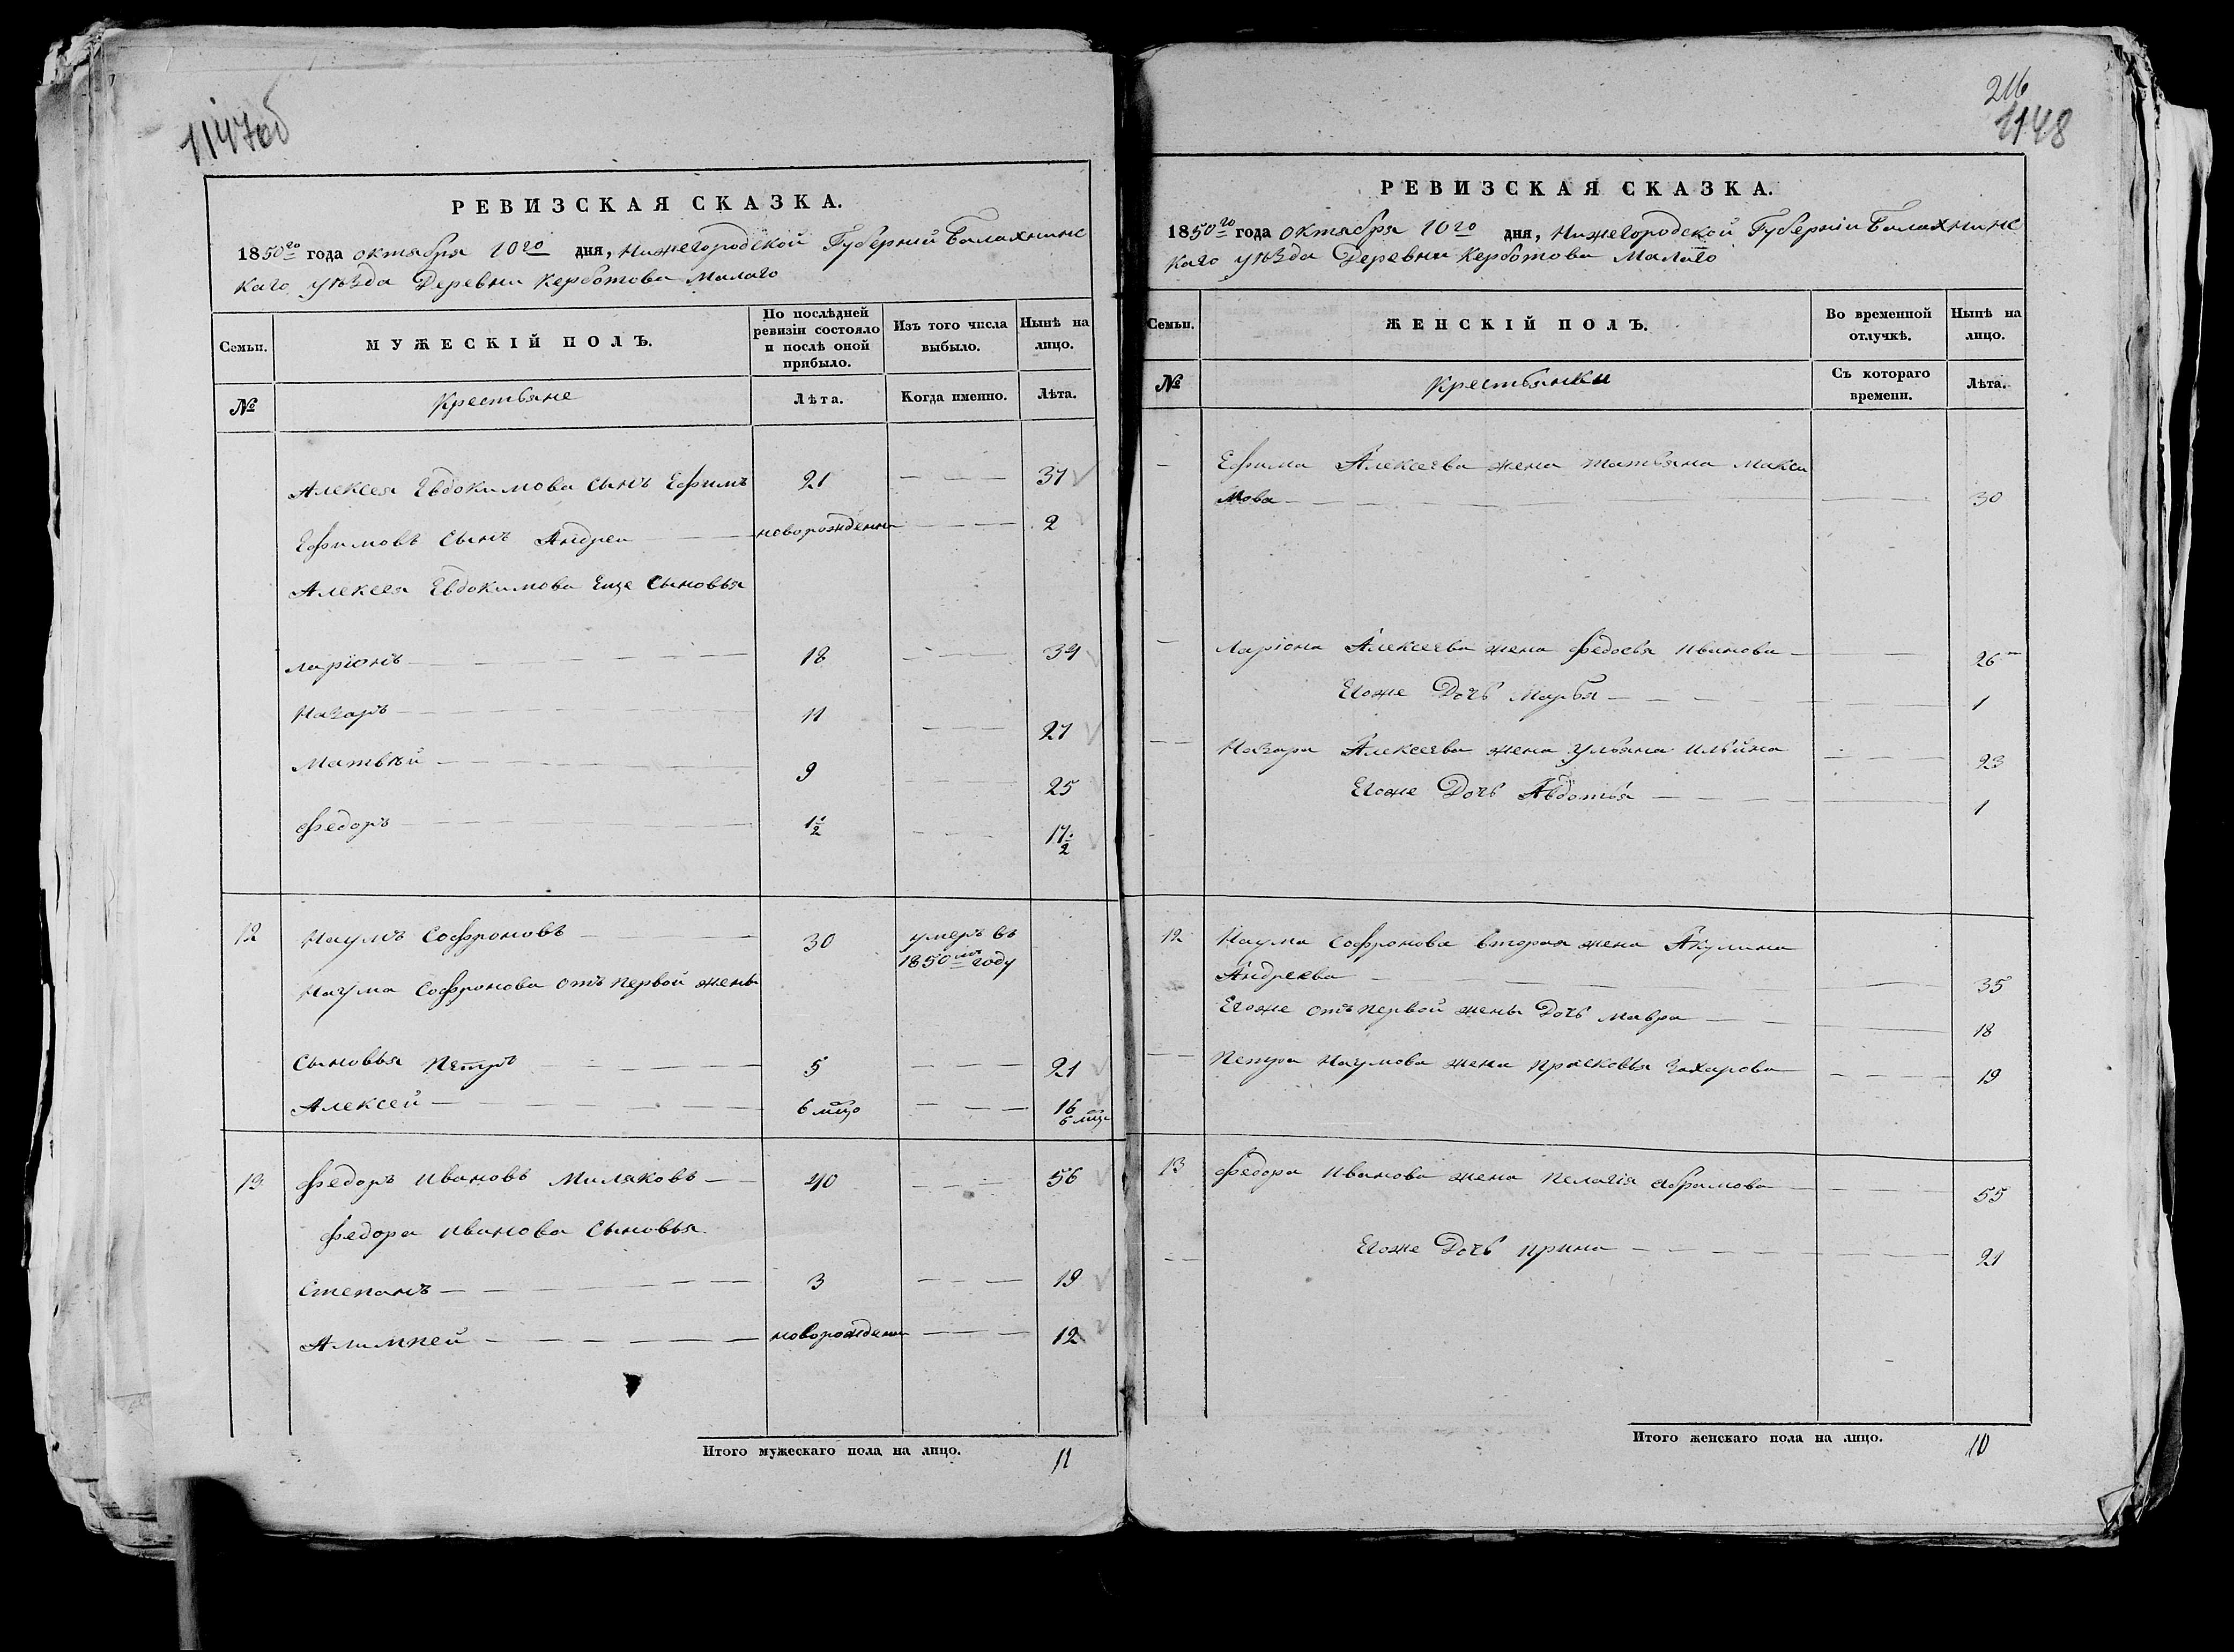 1147об
РЕВИЗСКАЯ СКАЗКА.
1850го года октября 10го дня, Нижегородской Губернии Балахнинс
каго уѣзда Деревни Керботова Малаго
Семьи.
МУЖЕСКІЙ ПОЛЪ.
По послѣдней ревизіи состояло и послѣ оной прибыло.
Изъ того числа выбыло.
Нынѣ на лицо.
№
Крестьяне
Лѣта.
Когда именно.
Лѣта.
Алексея Евдокимова сынъ Ефимъ 21 37
Ефимовъ сынъ Андреи новорожденны 2
Алексея Евдокимова Еще Сыновья
Ларіонъ 18 34
Назаръ 11 27
Матвѣй 9 25
Федоръ 1 1/2 17 1/2
12 Наумъ Софроновъ 30 умеръ въ
1850мъ году
Наума Софронова отъ первой жены
Сыновья Петръ 5 21
Алексей 6 мцо 16
6 мцо
13 Федоръ Ивановъ Миляковъ 40 56
Федора Иванова Сыновья
Степанъ 3 19
Алимпей новорожденны 12
Итого мужескаго пола на лицо. 11
216
1148
РЕВИЗСКАЯ СКАЗКА.
1850го года Октября 10го дня, Нижегородской Губерніи Балахнинс
каго уѣзда Деревни Керботова Малаго
Семьи.
ЖЕНСКІЙ ПОЛЪ.
Во временной отлучкѣ.
Нынѣ на лицо.
№
Крестьянки
Съ котораго времени.
Лѣта.
Ефима Алексеева жена Татьяна Макси
мова 30
Ларіона Алексеева жена Федосья Иванова 26
Егоже Дочь Марья 1
Назара Алексеева жена Ульяна Ильйна 23
Егоже Дочь Авдотья 1
12 Наума Софронова вторая жена Акулина
Андреева 35
Егоже отъ первой жены Дочь Мавра 18
Петра Наумова жена Прасковья Захарова 19
13 Федора Иванова жена Пелагія Абрамова 55
Егоже Дочь Ирина 21
Итого женскаго пола на лицо. 10